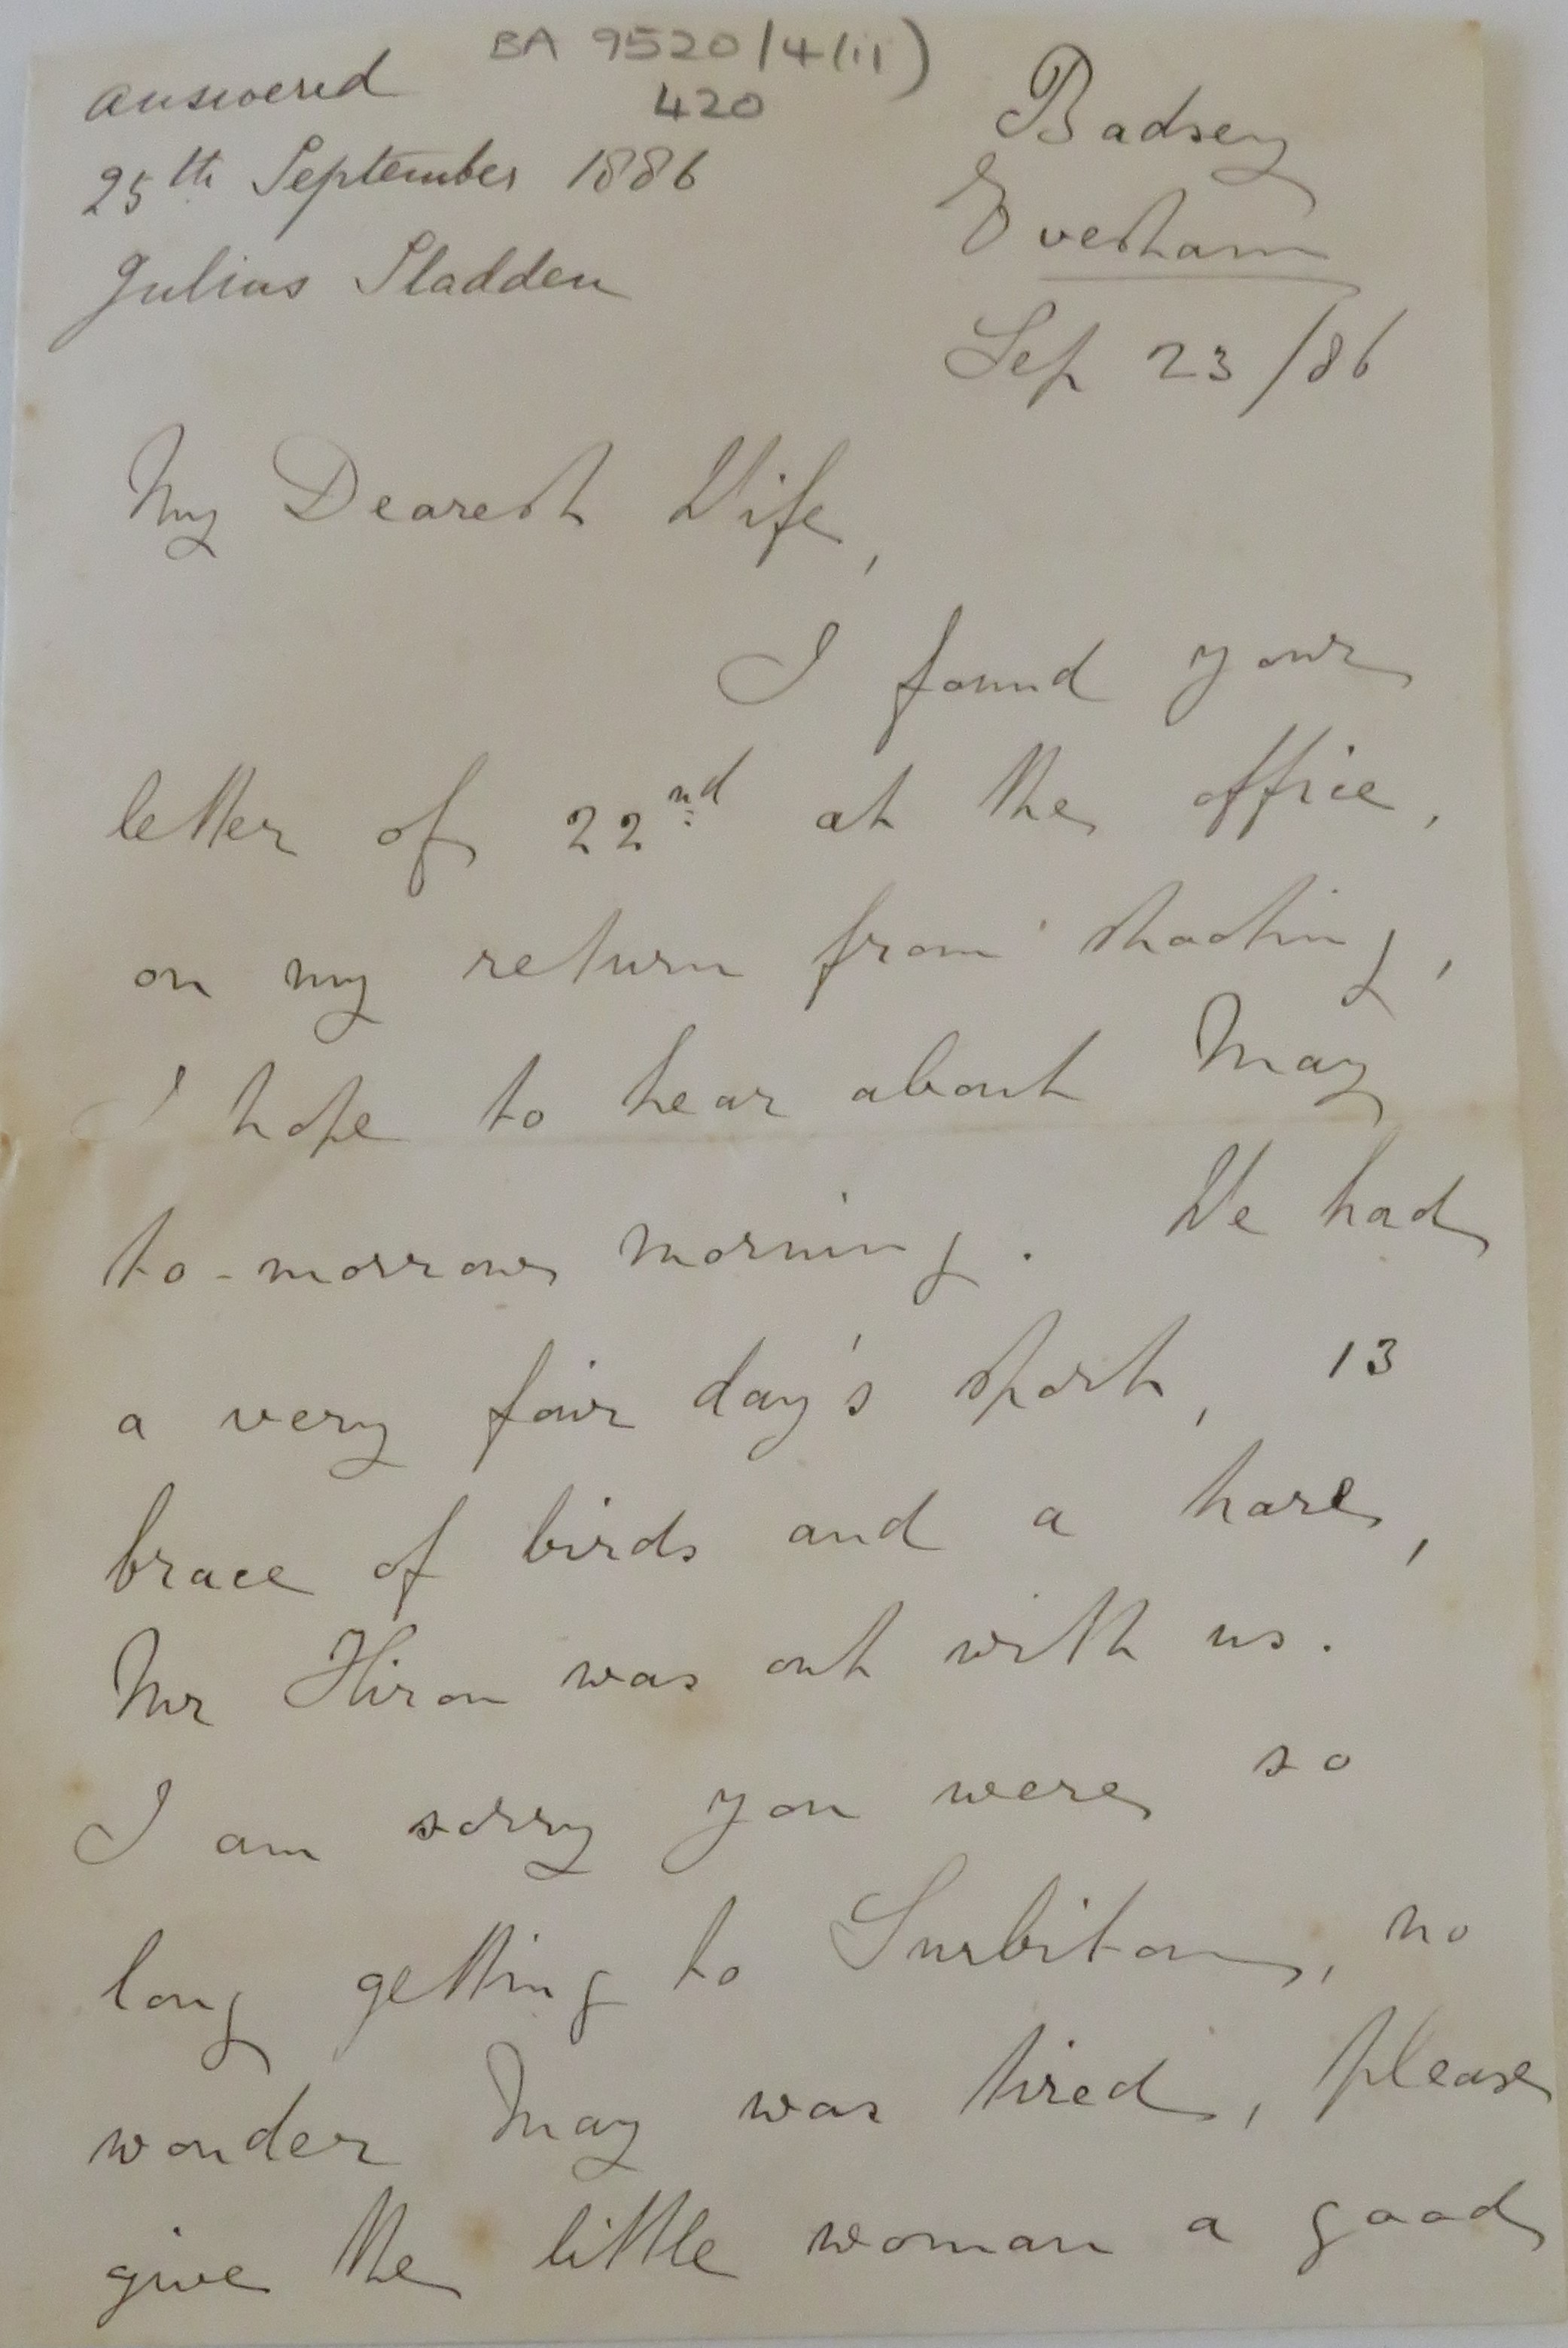 BA 9520/4(ii)
420
answered
25th September 1886
Julius Sladden
Badsey
Evesham
Sep 23/86
My Dearest Wife,
I found your
letter of 22nd at the office,
on my return from shooting,
I hope to hear about May
to-morrow morning. We had
a very fair day's sport, 13
brace of birds and a hare,
Mr Hiron was out with us.
I am sorry you were so
long getting to Surbiton, no
wonder May was tired, please
give the little woman a good